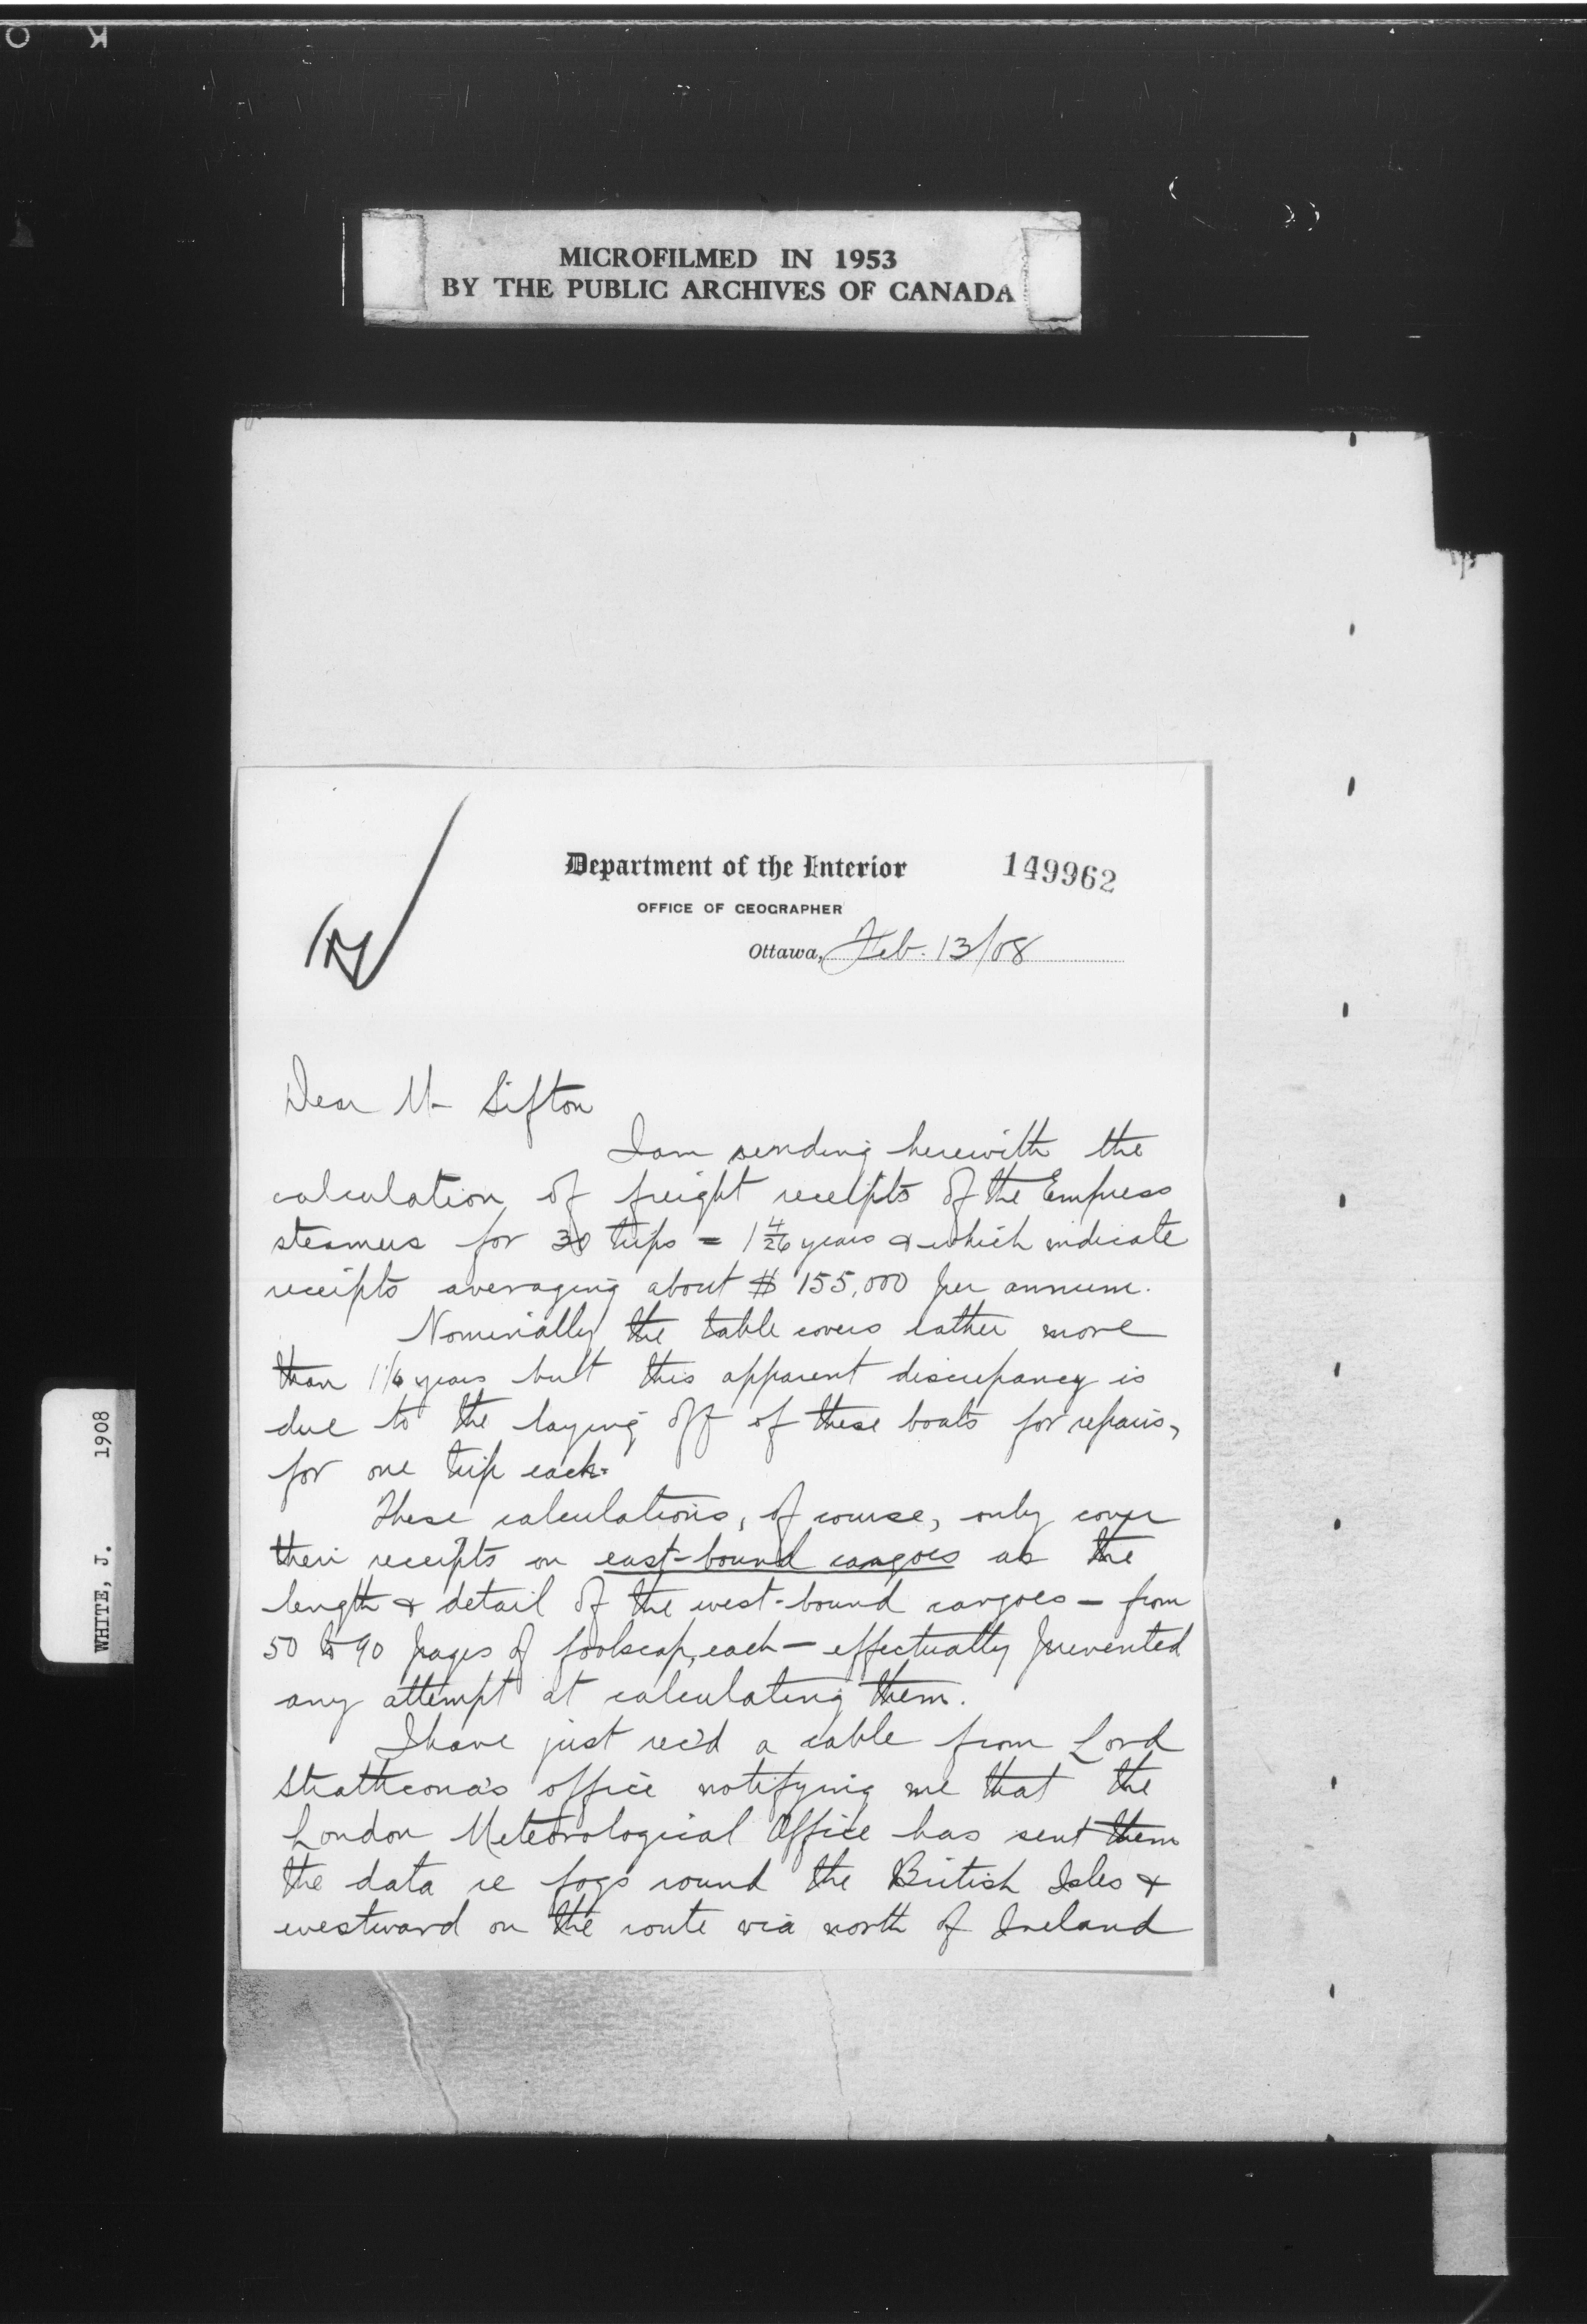 MICROFILMED IN 1953
BY THE PUBLIC ARCHIVES OF CANADA
WHITE, J. 1908
Department of the Interior
149962
OFFICE OF GEOGRAPHER
Ottawa, Feb. 13/08
Dear Mr Sifton
I am sending herewith the
calculation of freight receipts of the Empress
steamers for 30 trips = 1 4/26 years & which indicate
receipts averaging about $155,000 per annum.
Nominally the table covers rather more
than 1 1/6 years but this apparent discrepancy is
due to the laying off of these boats for repairs,
for one trip each.
These calculations, of course, only cover
their receipts on east-bound cargoes as the
length & detail of the west-bound cargoes - from
50 to 90 pages of foolscap, each - effectually prevented
any attempt at calculating them.
I have just rec'd a cable from Lord
Strathcona's office notifying me that the
London Meteorological Office has sent them
the data re fogs round the British Isles &
westward on the route via north of Ireland